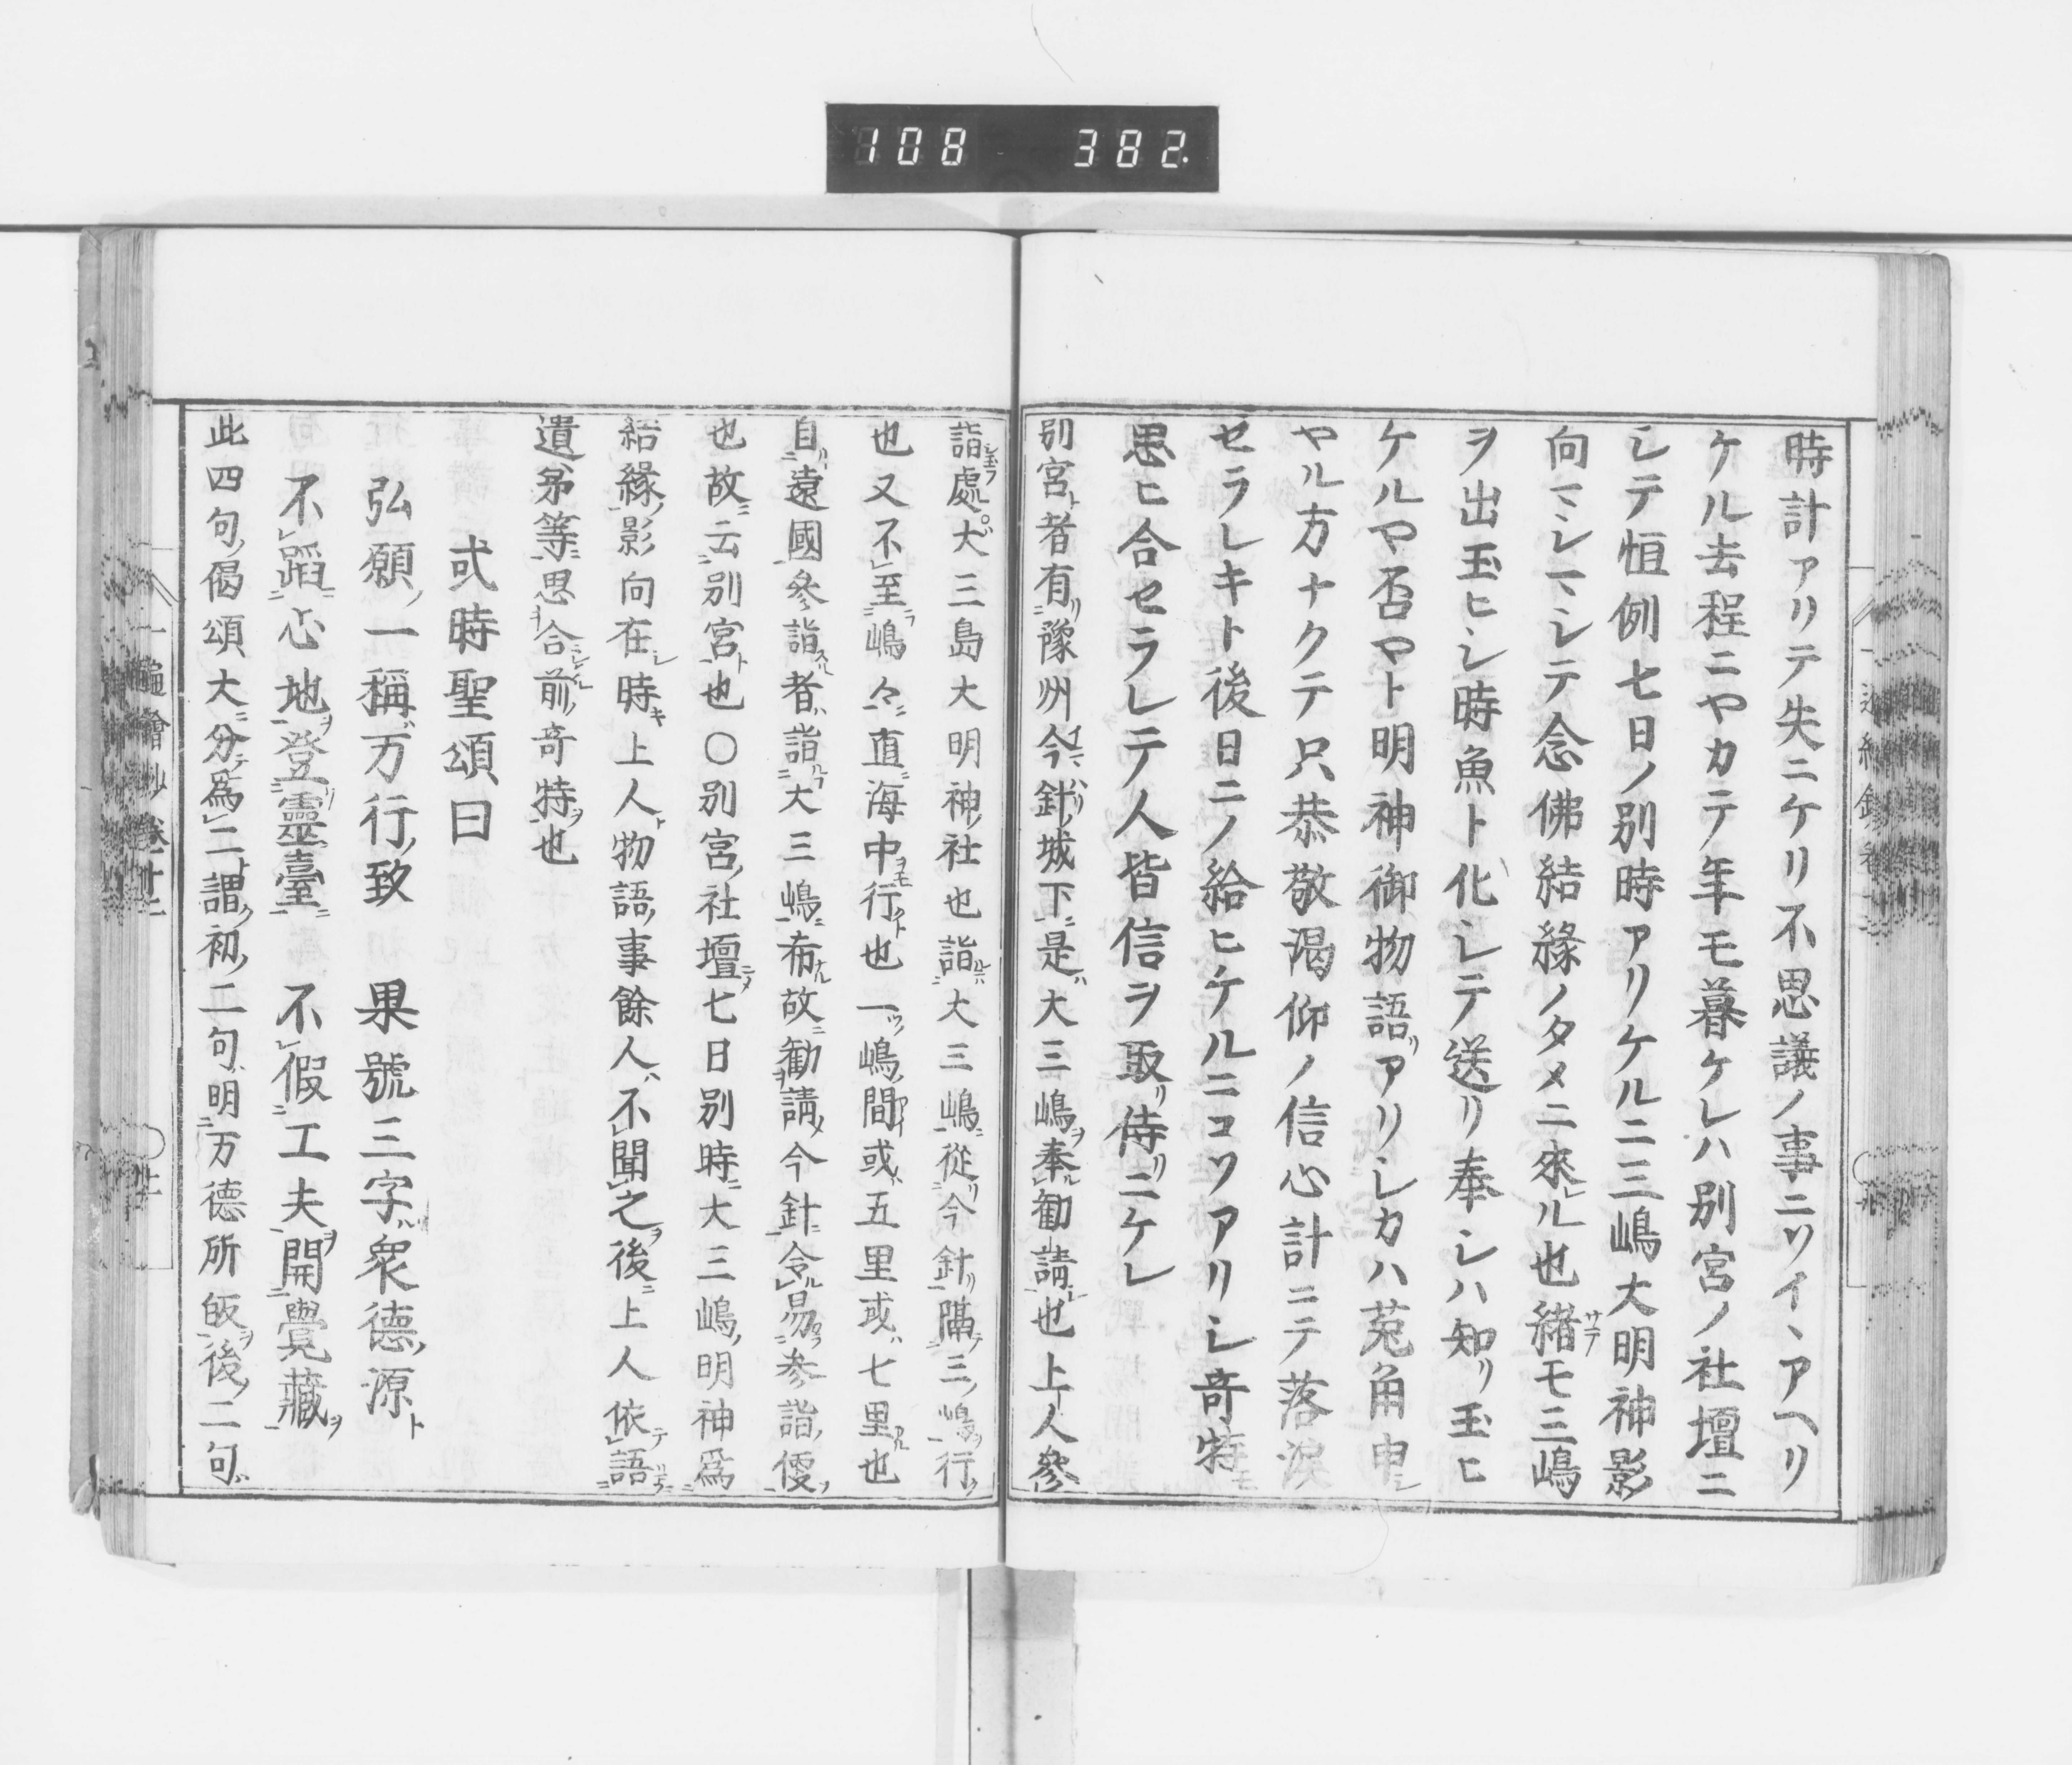 108 382
時計アリテ失ニケリ不思議ノ事ニツイヽアヘリ
ケル去程ニヤカテ年モ暮ケレハ別宮ノ社壇ニ
シテ恒例七日ノ別時アリケルニ三嶋大明神影
向マシマシテ念佛結縁ノタメニ來ル也緒モ三嶋
ヲ出玉ヒシ時魚ト化シテ送リ奉シハ知リ玉ヒ
ケルヤ否ヤト明神御物語アリシカハ菟角申
ヤル方ナクテ只恭敬渇仰ノ信心計ニテ落涙
セラレキト後日ニノ給ヒケルニコソアリシ竒特
思ヒ合セラレテ人皆信ヲ取侍リニケレ
別宮者有豫州今針城下是大三嶋奉勧請也上人參
詣處大三島大明神社也詣大三嶋從今針隔三嶋行
也又不至嶋々直海中行也一嶋間或五里或七里也
自遠國參詣者詣大三嶋布故勧請今針令易参詣便
也故云別宮也〇別宮社壇七日別時大三嶋明神爲
結縁影向在時上人物語事餘人不聞之後上人依語
遺弟等思合前竒特也
或時聖頌曰
弘願一稱万行致 果號三字衆德源
不蹈心地登靈臺 不假工夫開覺藏
此四句偈頌大分爲二謂初二句明万德所皈後二句
一遍繪抄 卷十二